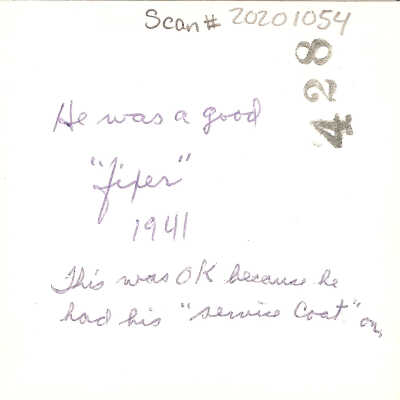 Scan # 20201054
428
He was a good
"fixer"
1941
This was OK because he
had his "service coat" on,